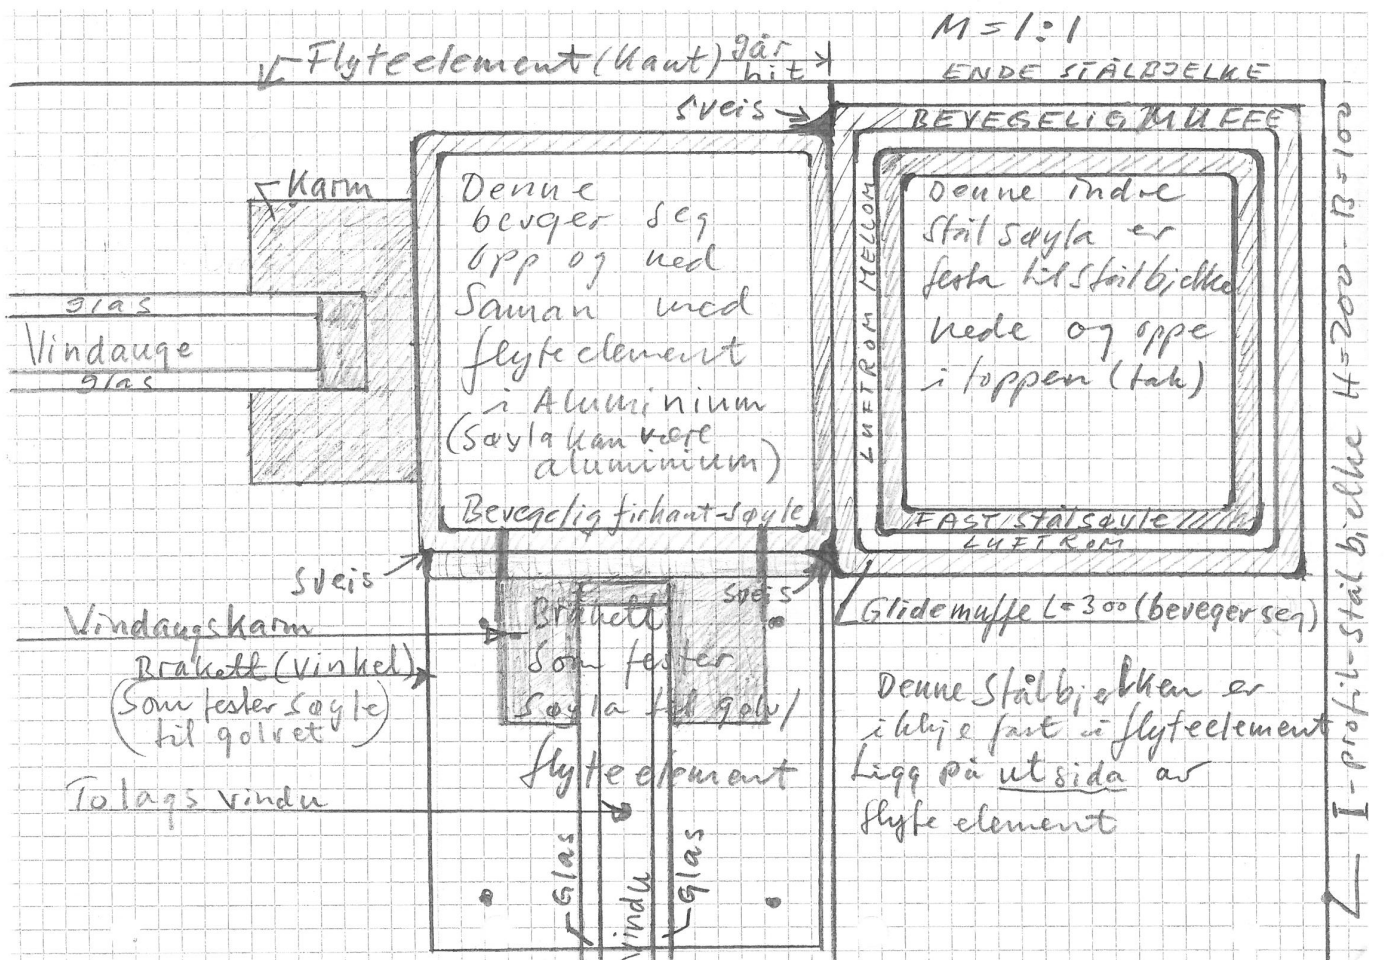 M = 1:1
Flyteelement (Kant) går
hit
ENDE STÅLBJELKE
Sveis
BEVEGELIG MUFFE
Karm
Denne
bevger seg
opp og ned
Saman med
flyteelement
i Aluminium
(Søyla kan være
aluminium)
Bevegelig firkant-søyle
LUFTROM MELLOM
Denne indre
Stål søyla er
festa til Stålbjelke
nede og oppe
i toppen (tak)
FAST Stålsøyle
LUFTROM
glas
Vindauge
glas
Sveis
Sveis
Glidemuffe L=300 (beveger seg)
Vindaugskarm
Brakett (vinkel)
(Som fester søyle
til golvet)
Brakett
Som fester
Søyla til golv/
flyteelement
To lags vindu
Glas
Vindu
Glas
Denne Stålbjelken er
ikkje fast i flyteelement
Ligg på utsida av
flyteelement
I-profil-Stålbjelke H=200-B=100